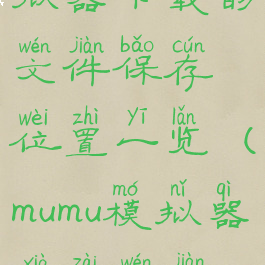 拟器下载的
wén jiàn bǎo cún
文件保存
wèi zhì Yī lǎn
位置一览（
mó nǐ qì
mumu模拟器
xià zài wén jiàn